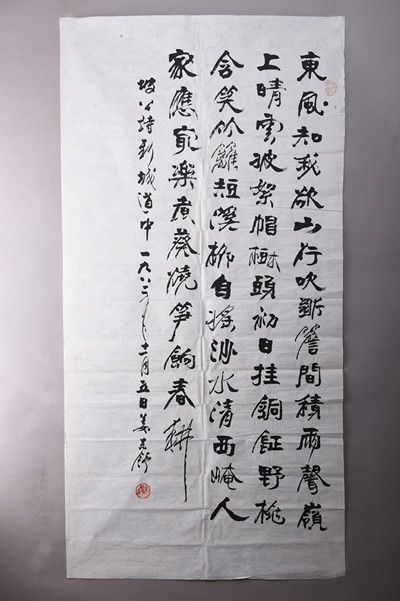 東風知我欲山行吹斷簷間積雨聲嶺
上晴雲披絮帽樹頭初日挂銅鉦野桃
含笑竹籬短溪柳自搖沙水清西崦人
家應最樂煮葵燒筍餉春耕
坡公詩新城道中 一九八 月五日姜东舒